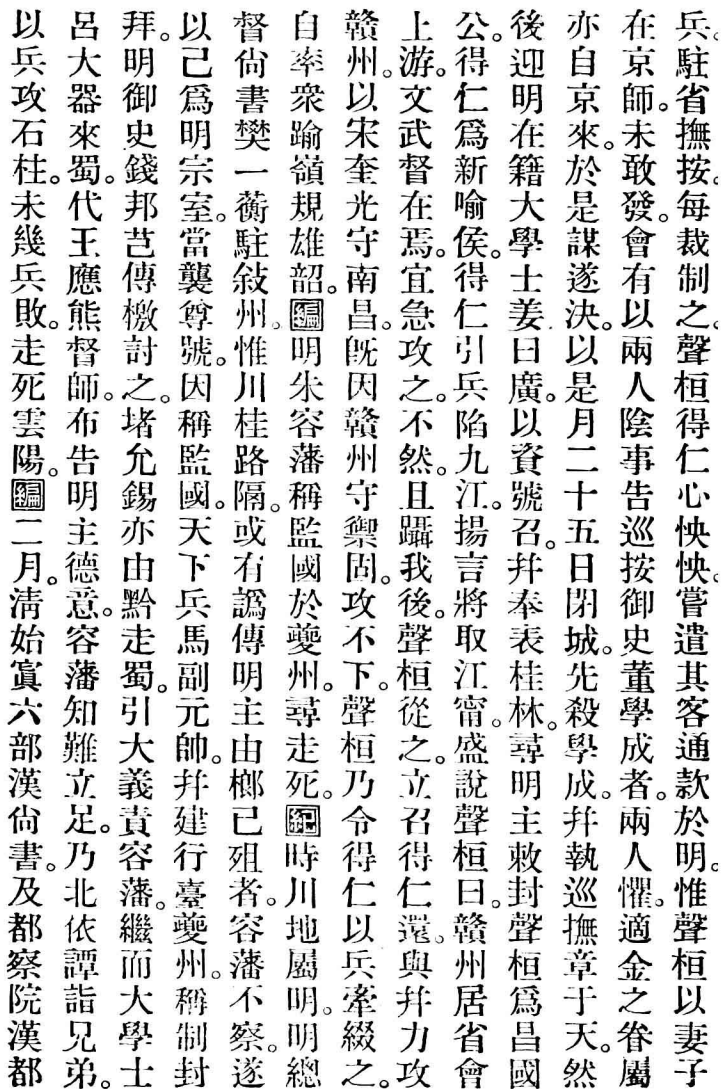 兵。駐省撫按。每裁制之。聲桓得仁心怏怏。嘗遣其客通款於明。惟聲桓以妻子
在京師。未敢發。會有以兩人陰事告巡按御史董學成者。兩人懼。適金之眷屬
亦自京來。於是謀遂決。以是月二十五日閉城。先殺學成。幷執巡撫章于天。然
後迎明在籍大學士姜曰廣。以資號召。幷奉表桂林。尋明主敕封聲桓爲昌國
公。得仁爲新喻侯。得仁引兵陷九江。揚言將取江甯。盛說聲桓曰。贛州居省會
上游。文武督在焉。宜急攻之。不然。且躡我後。聲桓從之。立召得仁還。與幷力攻
贛州。以宋奎光守南昌。旣因贛州守禦固。攻不下。聲桓乃令得仁以兵牽綴之。
自率衆踰嶺規雄韶。編明朱容藩稱監國於夔州。尋走死。紀時川地屬明。明總
督尙書樊一蘅駐敍州。惟川桂路隔。或有譌傳明主由榔已殂者。容藩不察。遂
以己爲明宗室。當襲尊號。因稱監國。天下兵馬副元帥。幷建行臺夔州。稱制封
拜。明御史錢邦芑傳檄討之。堵允錫亦由黔走蜀。引大義責容藩。繼而大學士
呂大器來蜀。代王應熊督師。布告明主德意。容藩知難立足。乃北依譚詣兄弟。
以兵攻石柱。未幾兵敗。走死雲陽。編二月。淸始寘六部漢尙書。及都察院漢都